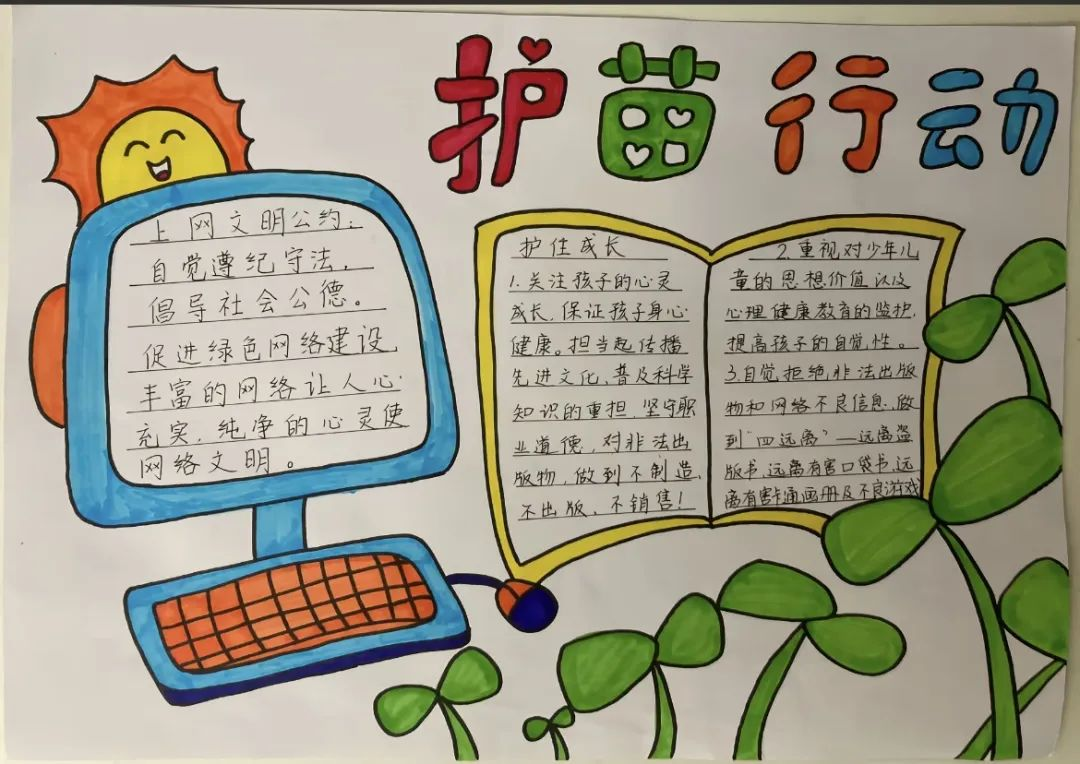 护苗行动
上网文明公约:
自觉遵纪守法,
倡导社会公德。
促进绿色网络建设,
丰富的网络让人心
充实,纯净的心灵使
网络文明。
护住成长
1.关注孩子的心灵
成长,保证孩子身心
健康。担当起传播
先进文化、普及科学
知识的重担,坚守职
业道德,对非法出
版物,做到不制造,
不出版,不销售!
2.重视对少年儿
童的思想价值以及
心理健康教育的监护,
提高孩子的自觉性。
3.自觉拒绝非法出版
物和网络不良信息,做
到“四远离”—远离盗
版书、远离有害口袋书、远
离有害卡通画册及不良游戏